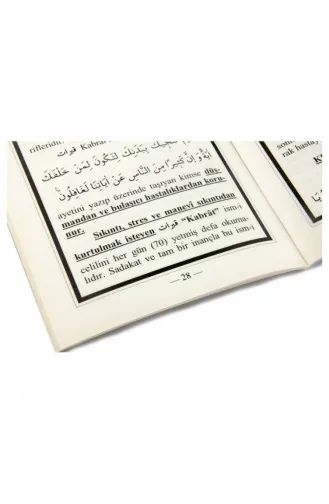 rifleridir.
فوات Kabrât
نُنَجِّيكَ بِبَدَنِكَ لِتَكُونَ لِمَنْ خَلْفَكَ
اٰيَةً وَ اِنَّ كَثِيرًا مِنَ النَّاسِ عَنْ اٰيَاتِنَا لَغَافِلُونَ
ayetini yazıp üzerinde taşıyan kimse düş-
mandan ve bulaşıcı hastalıklardan koru-
nur. Sıkıntı, stres ve manevî sıkıntıdan
kurtulmak isteyen فوات "Kabrât" ism-i
celilini her gün (70) yetmiş defa okuma-
lıdır. Sadakat ve tam bir inançla bu ism-i
— 28 —
rak hasta